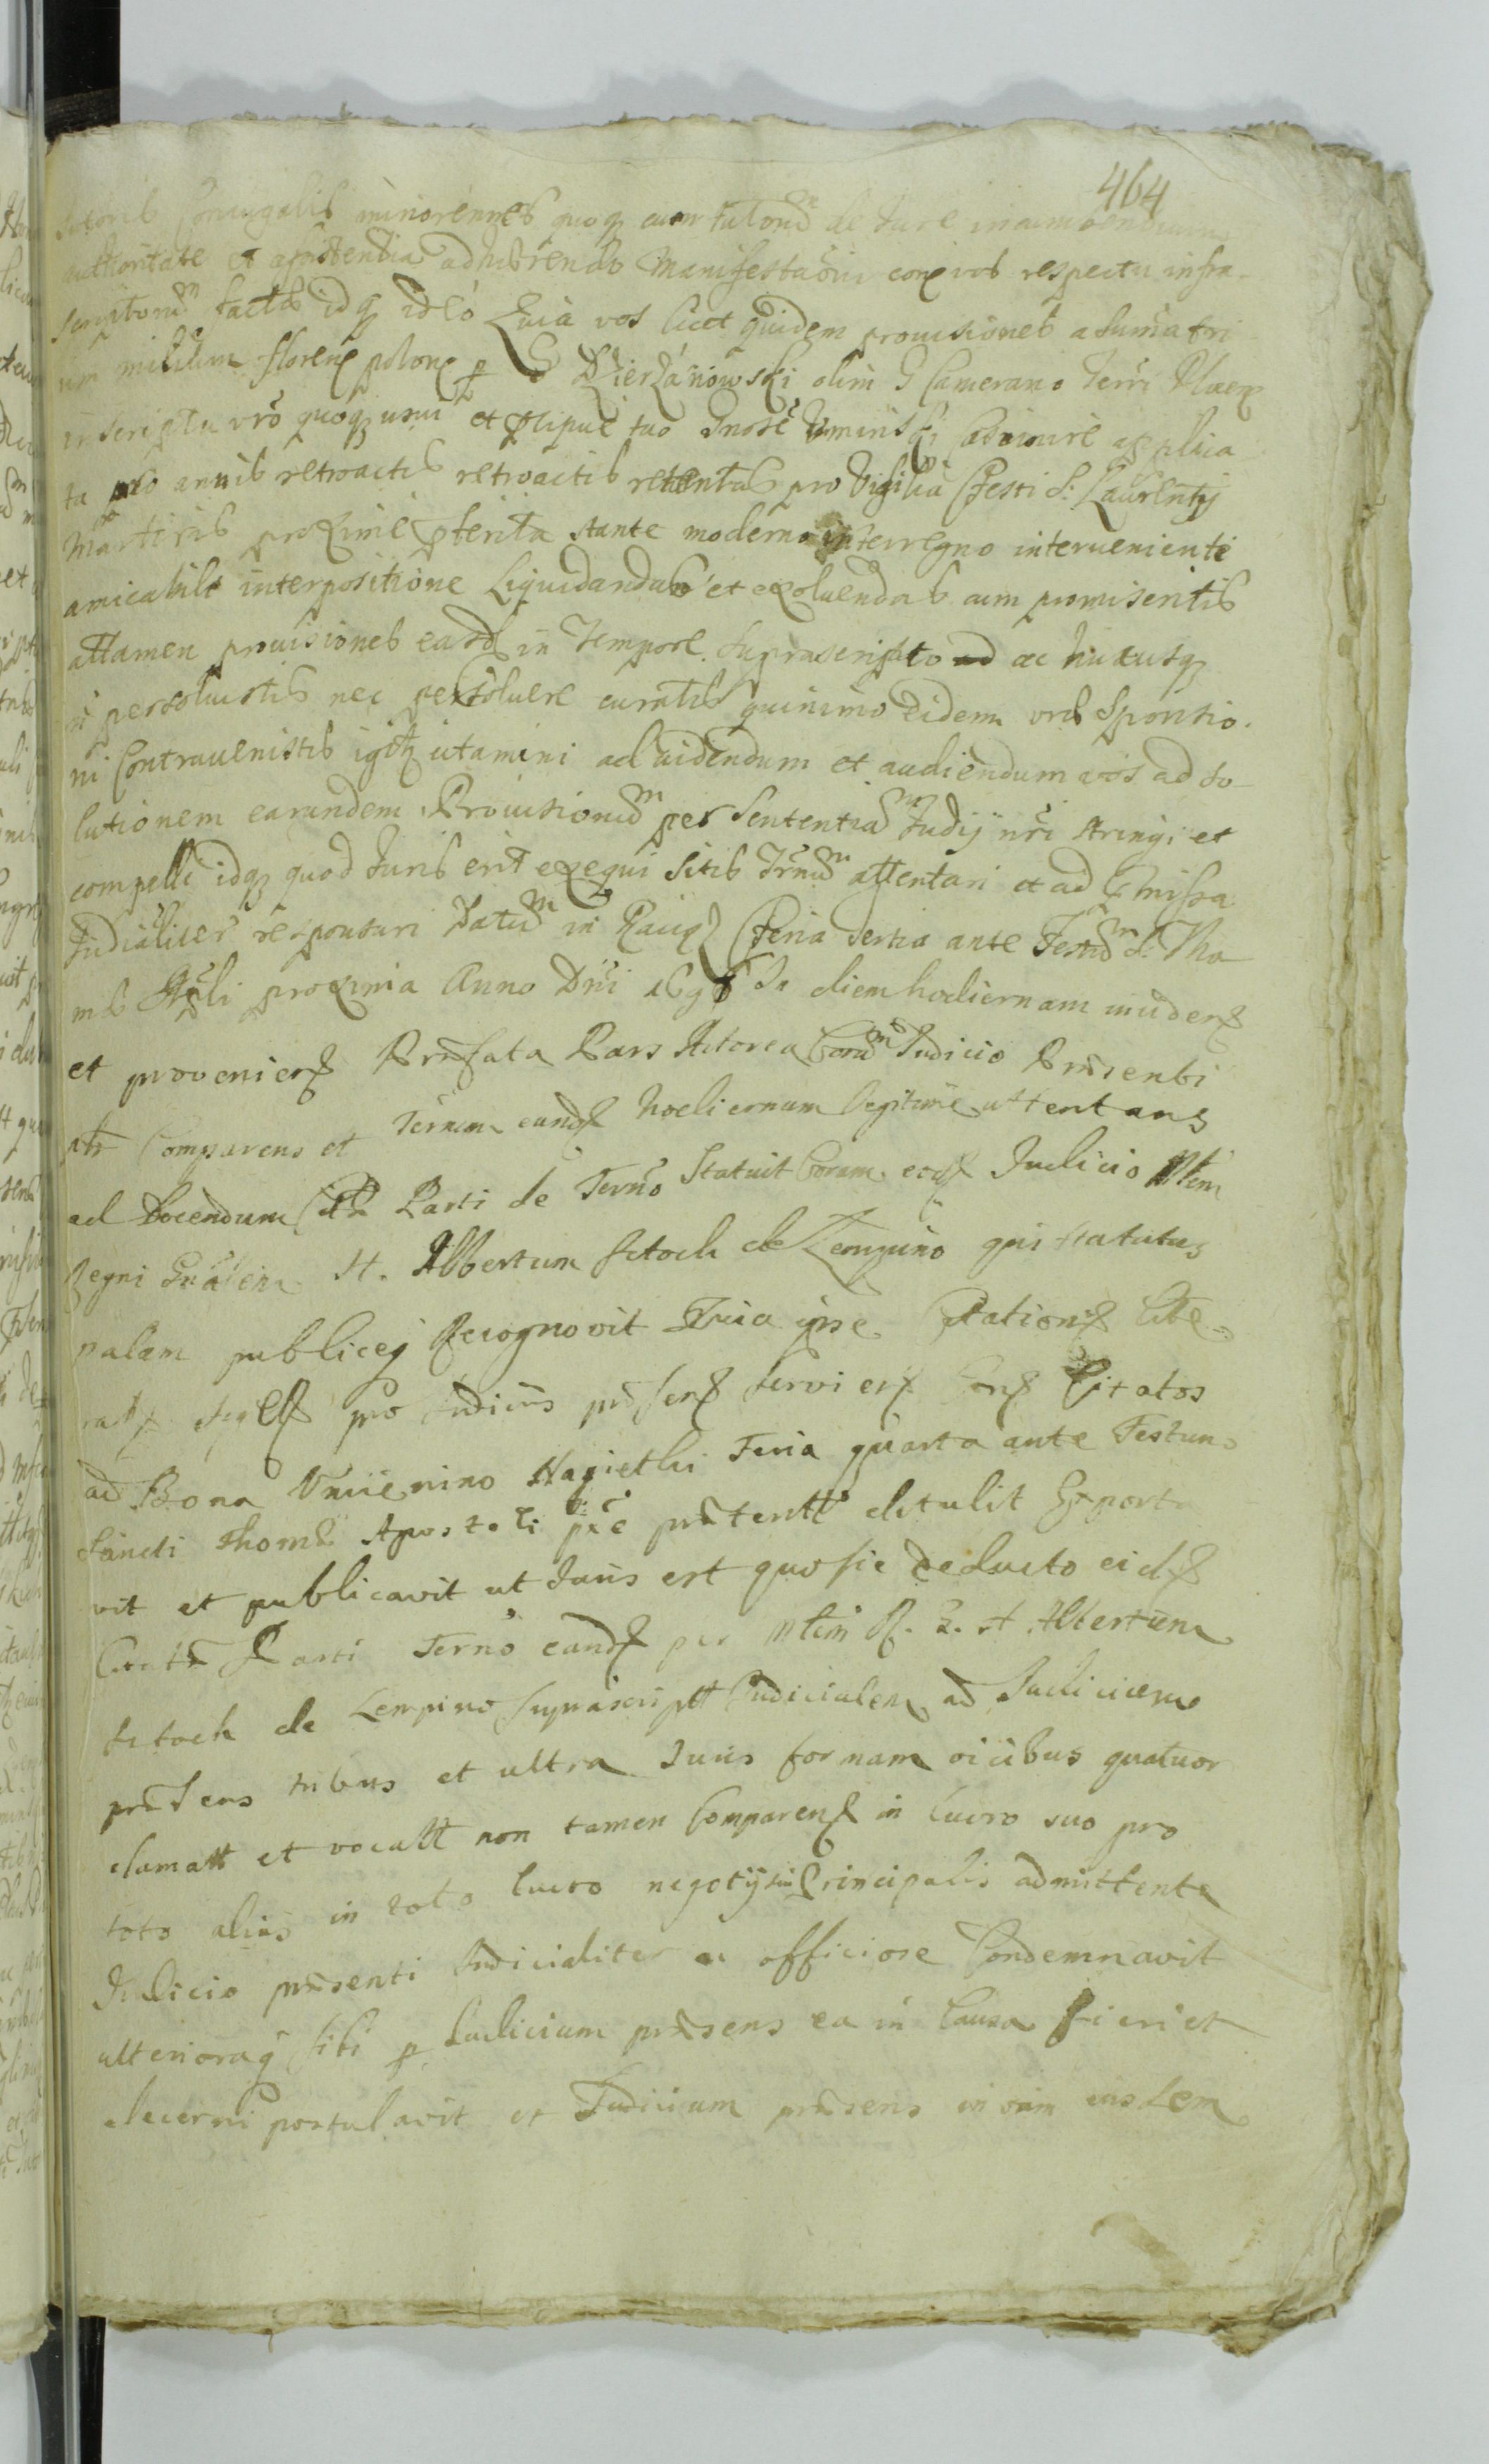 464
Coniugalis minorennes quoq eum tutorum de Jure incumbentium
authoritate et assistentia adhibenda Manifestaōni respectu infra-
scriptorum factas idq ideo Quia vos licet quidem provisiones a suma tri
um millium floren polon p G Dzierzanowski olim G Camerario Terrae
inscripta vrō quoq usui et
ta annis retroactis retroactis retentas pro Vigilia Festi S: Laurentij
Martiris proxime pterita stante moderno interregno interveniente
amicabili interpositione Liquidandas et exolvendas cum promiseritis
attamen provisiones easd in Tempore suprascripto ad ac hucusq
n persolvistis nec persolvere curatis quinimo eidem vrae Sponsio-
ni Contravenistis igitz citamini ad videndum et audiendum vos ad so-
lutionem earundem Provisionum per Sententiam Judij nri stringi et
compelli idq quod Juris erit exequi sitis Trnum attentari et ad pmissa
Judialiter responsuri Datum in Raciąż Feria tertia ante Festum S. Tho
mae Apli proxima Anno Dni 1696 In diem hodiernam inciden
et provenien Praefata Pars Actorea Coram Judicio Praesenti
ptr Comparens et Termin eand hodiernum legitime attentans
ad docendum Citt Parti de Terno Statuit Coram eod Judicio Mlem
Regni Gnalem H. Albertum Sctoch de Lempino qui statutus
palam publiceq Recognovit Quia ipse Citationis Lite-
ras pro Judiciis praesen servien Citatos
ad Bona Umienino Nagietki Feria quarta ante Festum
Sancti Thomae Apostoli pxe praeterit detulit Exporta
vit et publicavit ut Juris est quo sic deducto eid
Citt Parti Terno eand per Mlem R. G. H. Albertum
Sctoch de Lempino suprascript Judicialem ad Judicium
praesens tribus et ultra Juris formam vicibus quatuor
clamatt et vocatt non tamen Comparen in lucro suo pro
toto alias in toto lucro negotij sui Principalis admittente
Judicio praesenti Judicialiter ac officiose Condemnavit
ulterioraq sibi p Judicium praesens ea in Causa fieri et
decerni postulavit et Judicium praesens in vim eiusdem